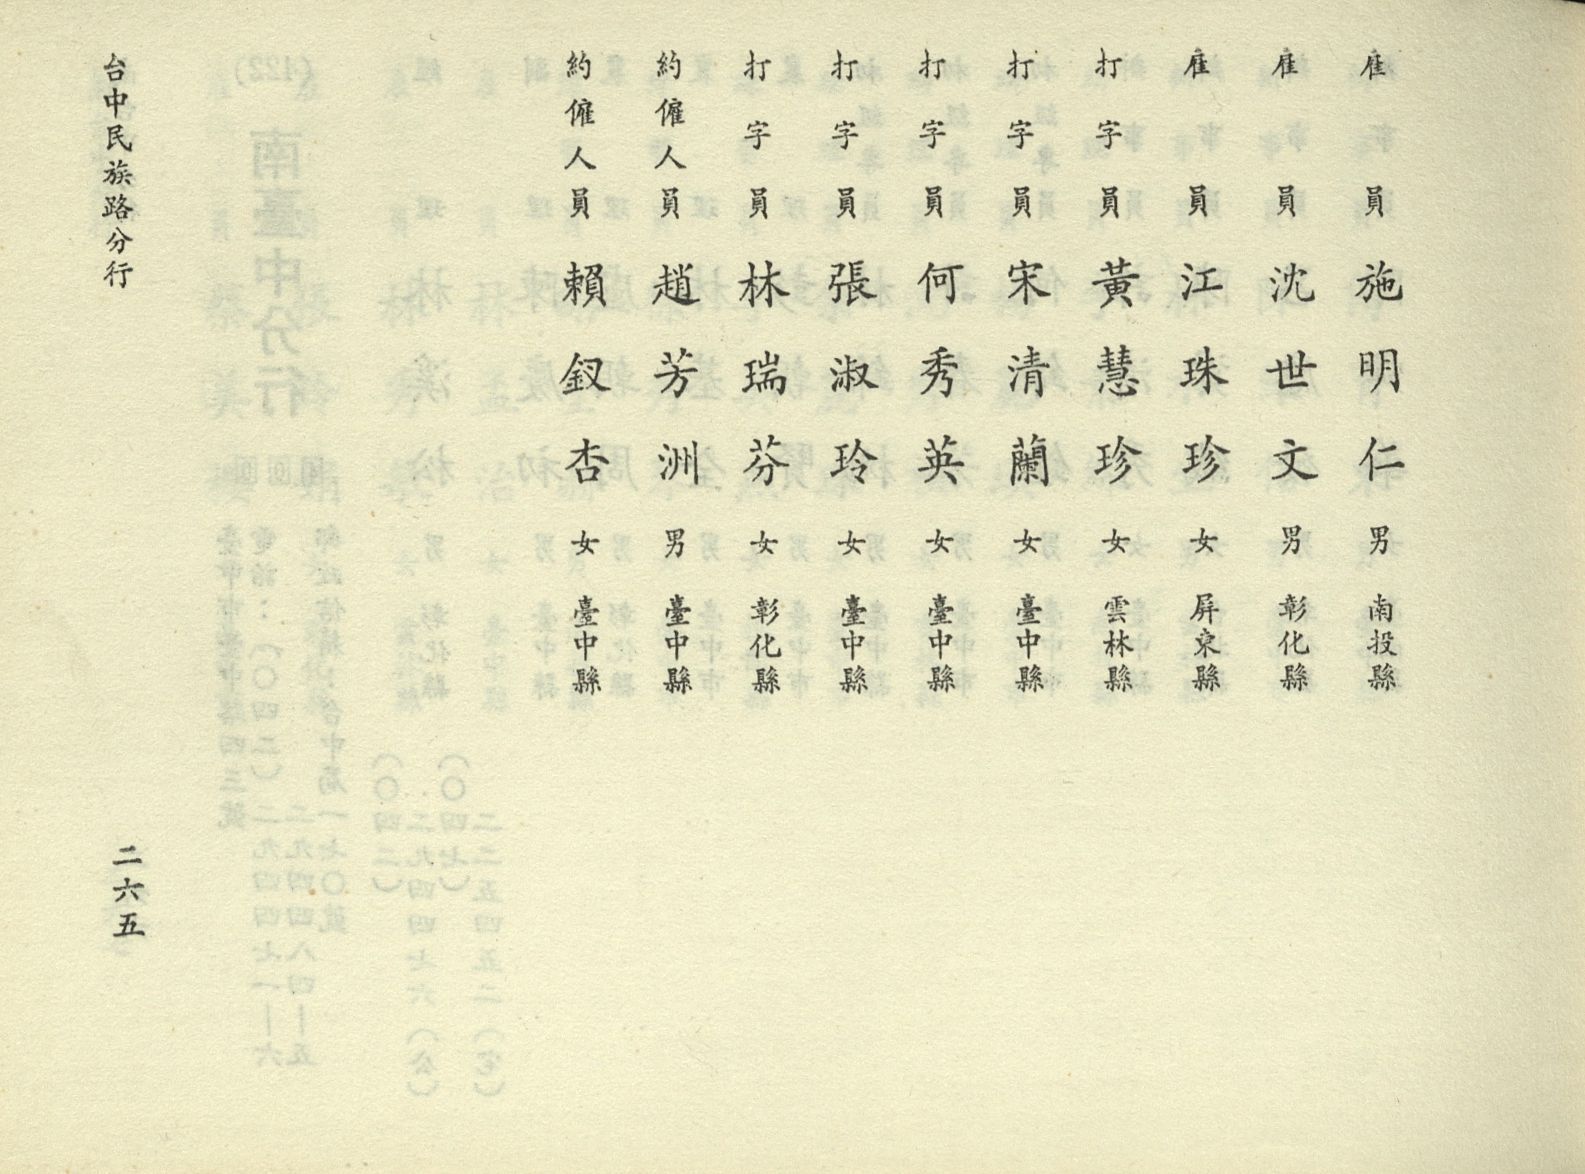 雇員施明仁男南投縣
雇員沈世文男彰化縣
雇員江珠珍女屏東縣
打字員黃慧珍女雲林縣
打字員宋清蘭女臺中縣
打字員何秀英女臺中縣
打字員張淑玲女臺中縣
打字員林瑞芬女彰化縣
約僱人員趙芳洲男臺中縣
約僱人員賴釵杏女臺中縣
台中民族路分行
二六五